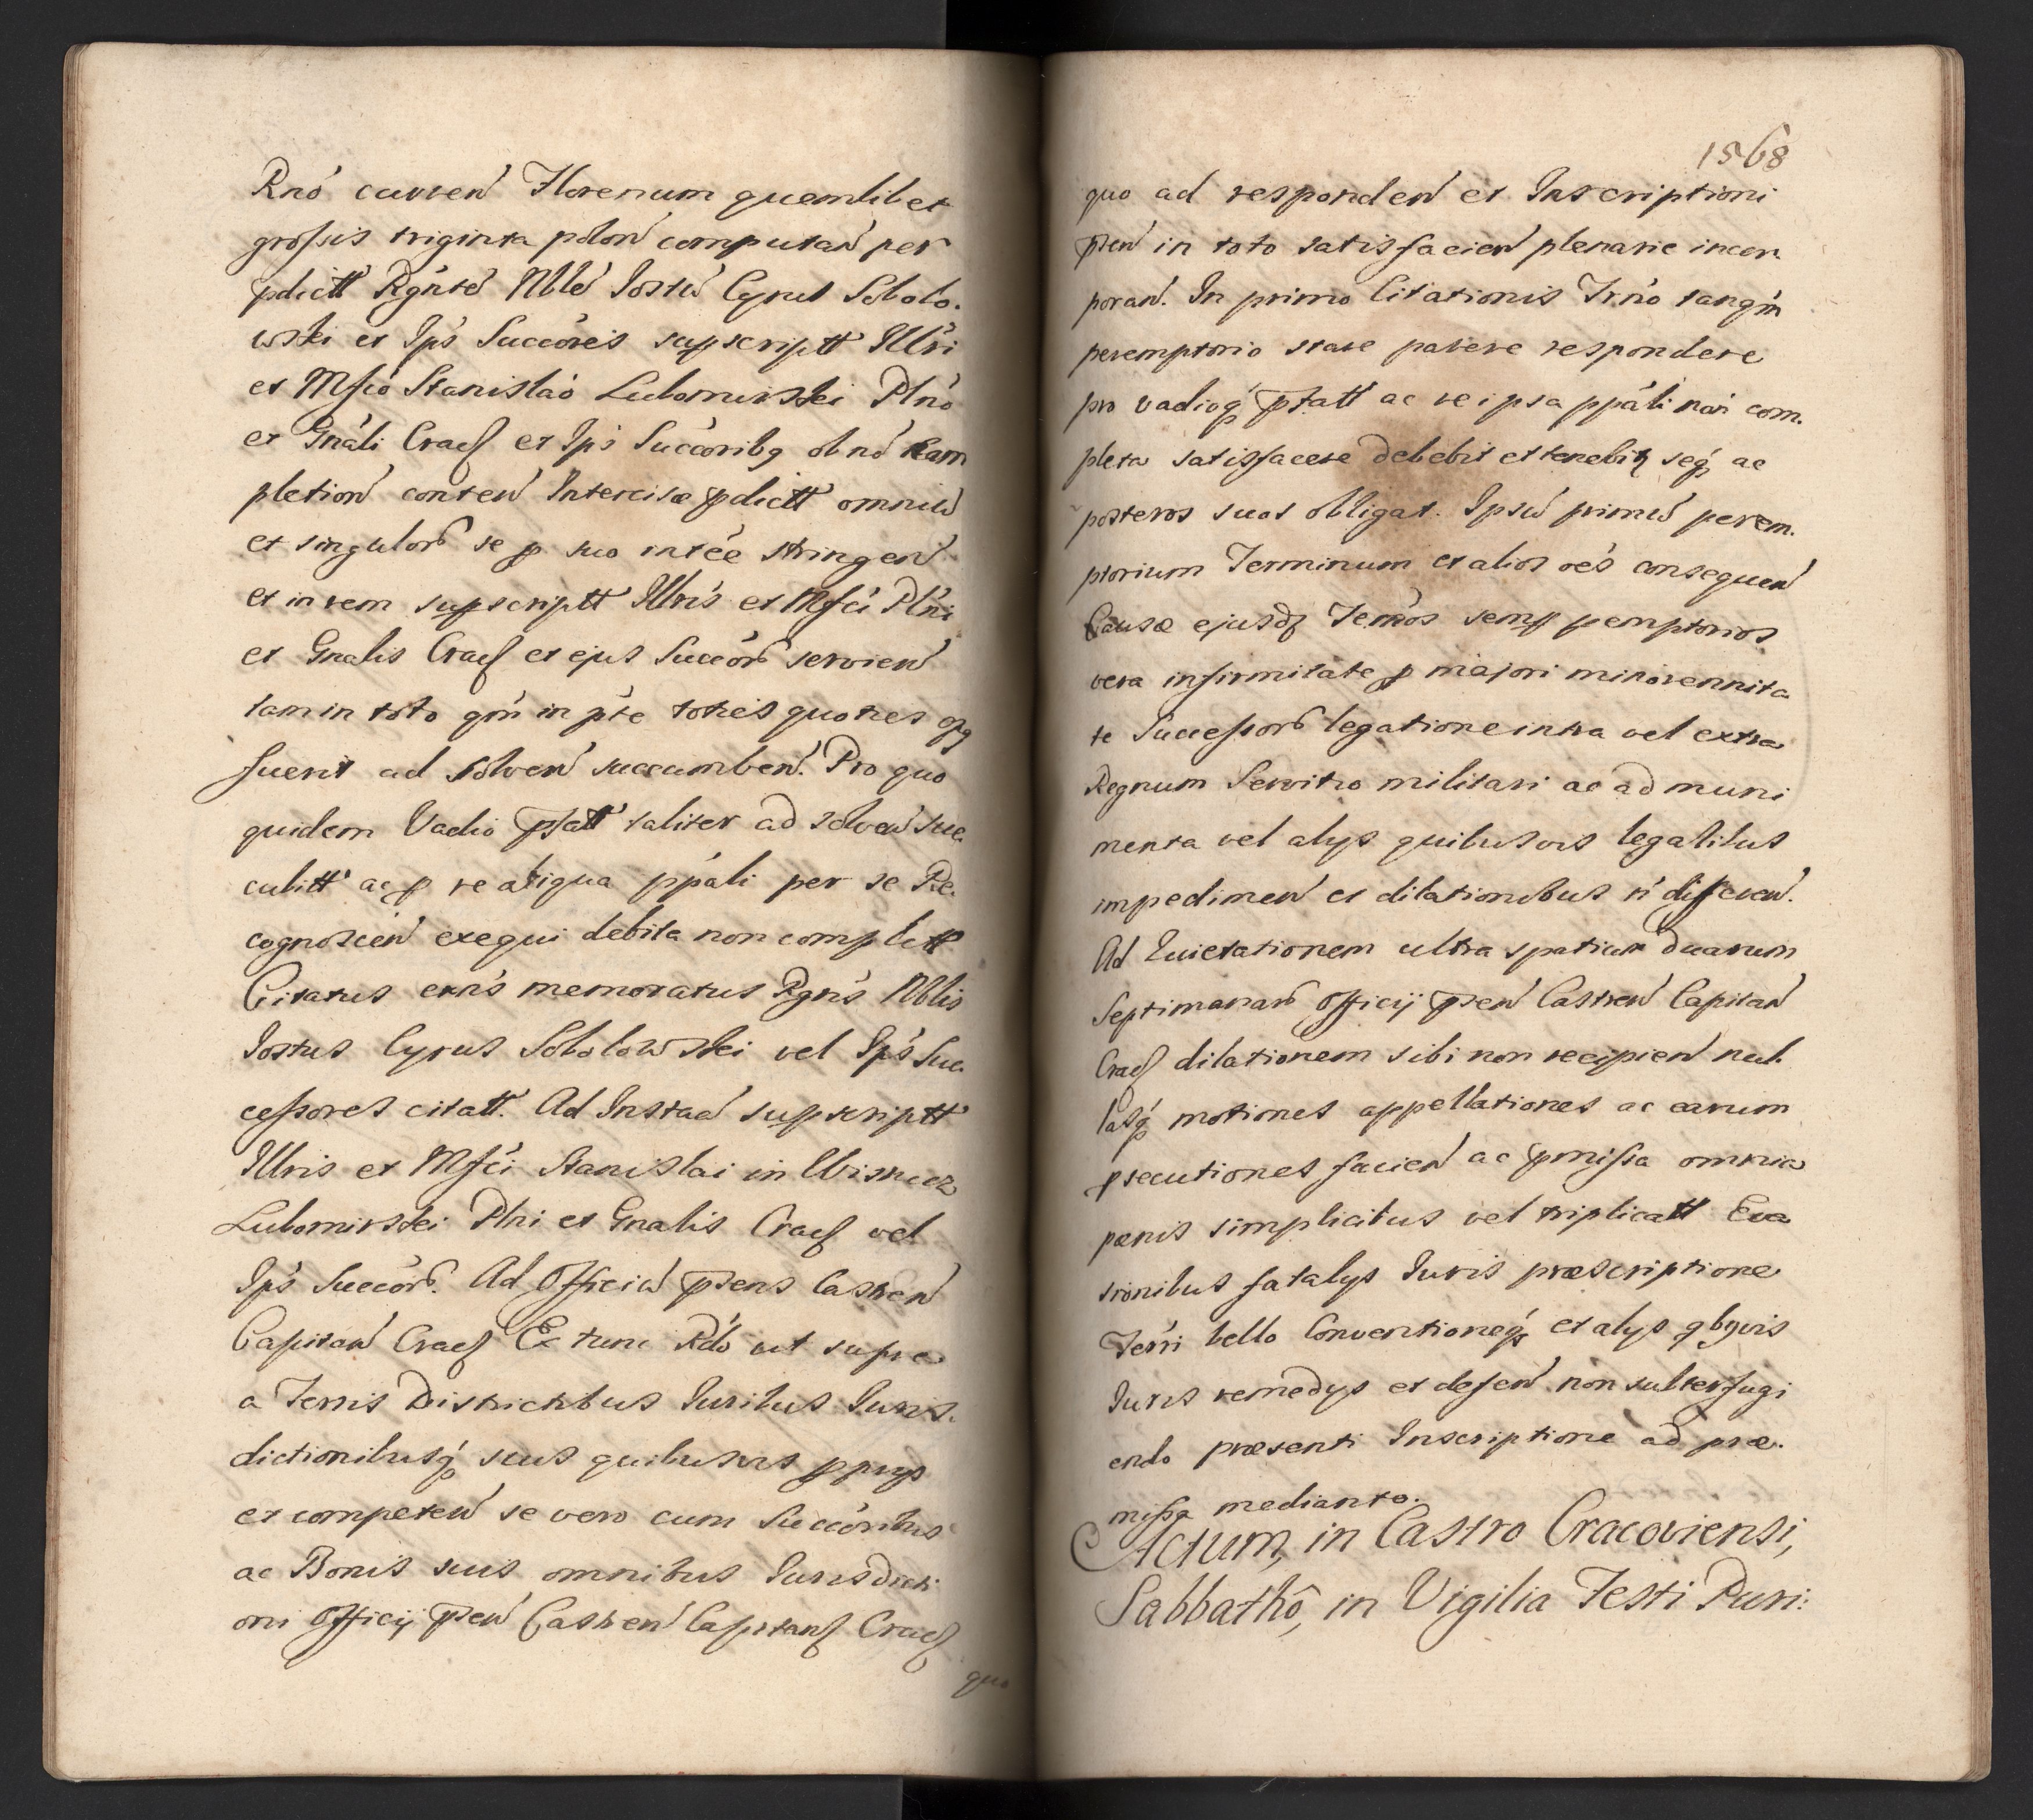 Rnó curren̄ Florenum quemlibet
grossis triginta polon̄ computan̄ per
pdictt Rgńte Nble Jostu̅ Cyrus Sobolo-
wski et Ips Succores supscriptt Illri
et Mfico Stanislao Lubomirski Plno
et Gnali Cracȝ et Ips Succoribȝ ob no̅ com
pletion̄ conten̄ Intercisæ pdictt omniu̅
et singulor̄ se p suo intee stringen̄
et in rem supscriptt Illris et Mfci Plni
et Gnalis Cracȝ et ejus Succor̄ servien̄
tam in toto qm̄ in pte toties quoties opȝ
fuerit ad solven̄ succumben̄. Pro quo
quidem Vadio pfatt taliter ad solven̄ suc-
cubitt ac p re aliqua ppali per se Re-
cognoscen̄ exequi debita non complett
Citatus exns memoratus Rgns Nblis
Jostus Cyrus Sobolowski vel Ips Suc-
cessores citatt. Ad Instan̄ supscriptt
Illris et Mfci Stanislai in Wisnicz
Lubomirski Plni et Gnalis Cracȝ vel
Ips Succor̄. Ad Officiu̅ psens Castren̄
Capitan̄ Cracȝ Ex tunc Rdo ut supra
a Terris Districtibus Juribus Juris-
dictionibusqȝ suis quibusvis pprys
et competen̄ se vero cum Succoribus
ac Bonis suis omnibus Jurisdicti-
oni Officij psen̄ Castren̄ Capitanȝ Cracȝ
quo
1568
quo ad responden̄ et Inscriptioni
psen̄ in toto satisfacien̄ plenarie incor-
poran̄. In primo Citationis Trno tanqm̄
peremptorio stare parere respondere
pro vadioqȝ pfatt ac re ipsa ppali non com-
pleta satisfacere debebit et tenebitȝ seqȝ ac
posteros suos obligat. Ipsu̅ primu̅ perem-
ptorium Terminum et alios oes consequen̄
Causæ ejusdȝ Termos semp pemptorios
vera infirmitate p majori minorennita
te Successor̄ legatione intra vel extra
Regnum Servitio militari ac ad muni
menta vel alys quibusvis legalibus
impedimen̄ et dilationibus n̄ differen̄.
Ad Quietationem ultra spatium duarum
Septimanar̄ Officij psen̄ Castren̄ Capitan̄
Cracȝ dilationem sibi non recipien̄ nul-
lasqȝ motiones appellationes ac earum
psecutiones facien̄ ac pmissa omnia
pœnis simplicibus vel triplicatt Eva
sionibus fatalys Juris præscriptione
Terri bello Conventioneqȝ et alys qbȝvis
Juris remedys et defen̄ non subterfugi
endo præsenti Inscriptione ad præ-
missa mediante.
Actum, in Castro Cracoviensi,
Sabbathô, in Vigilia Festi Puri: